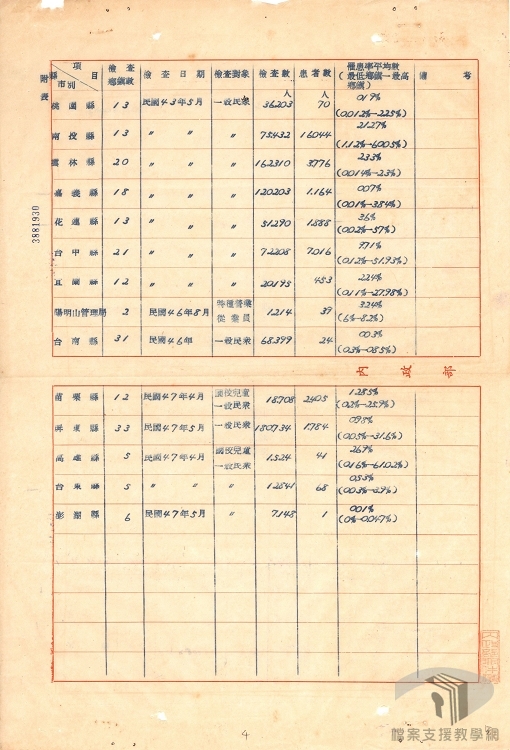 附表
3881930
項目 縣市別 檢查鄉鎮數 檢查日期 檢查對象 檢查數 患者數 罹患率平均數(最低鄉鎮—最高鄉鎮) 備考
桃園縣 13 民國43年5月 一般民衆 36203人 70人 0.19% (0.012%—2.25%)
南投縣 13 〃 〃 〃 75432 16044 21.27% (1.12%—60.05%)
雲林縣 20 〃 〃 〃 162310 3776 2.33% (0.014%—23%)
嘉義縣 18 〃 〃 〃 120203 1.164 0.07% (0.01%—3.84%)
花蓮縣 13 〃 〃 〃 51.290 1.888 3.6% (0.02%—57%)
台中縣 21 〃 〃 〃 72208 7.016 9.71% (0.12%—51.93%)
宜蘭縣 12 〃 〃 〃 20195 453 2.24% (0.11%—27.98%)
陽明山管理局 2 民國46年8月 特種營業從業員 1.214 39 3.24% (.6%—8.2%)
台南縣 31 民國46年 一般民衆 68.399 24 0.03% (0.3%—0.85%)
內政部
苗栗縣 12 民國47年4月 國校兒童一般民衆 18.708 2405 12.85% (0.2%—25.9%)
屏東縣 33 民國47年5月 一般民衆 180734 1.784 0.95% (0.05%—31.6%)
高雄縣 5 民國47年4月 國校兒童一般民衆 1.524 41 2.69% (0.16%—61.02%)
台東縣 5 〃 〃 〃 12841 68 0.53% (0.03%—3.9%)
澎湖縣 6 民國47年5月 〃 7.148 1 0.01% (0%—0.047%)
4
檔案支援教學網